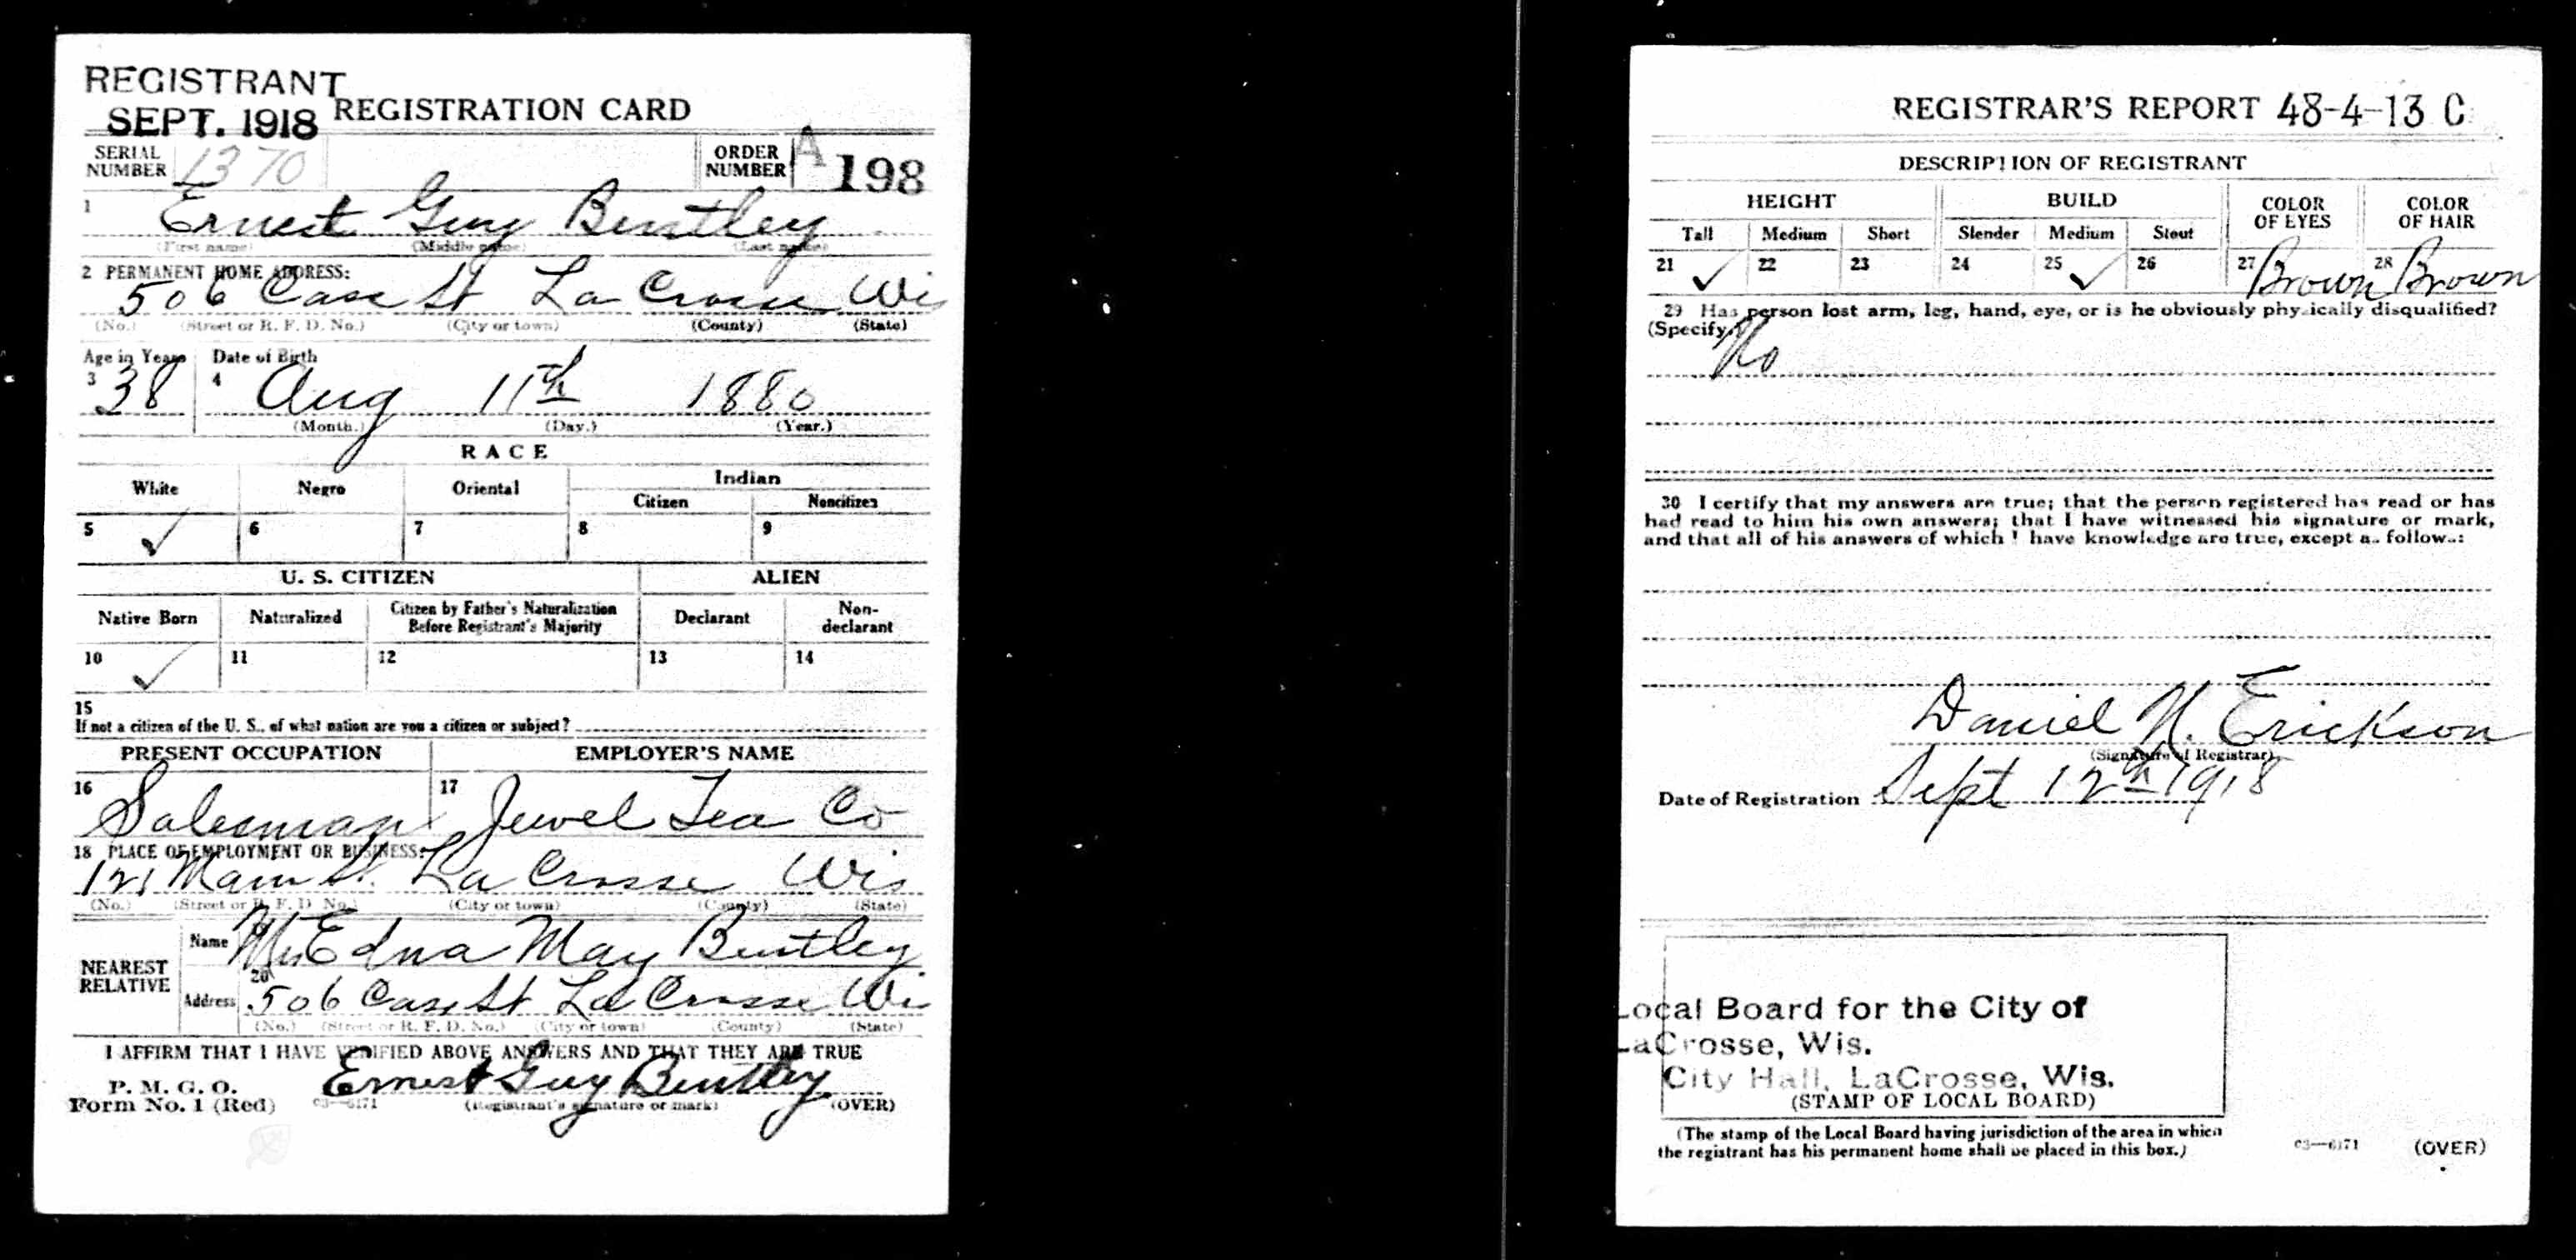 REGISTRANT
SEPT. 1918 REGISTRATION CARD
SERIAL NUMBER 1370 ORDER NUMBER A 198
1 Ernest Guy Bentley
(First name) (Middle name) (Last name)
2 PERMANENT HOME ADDRESS:
506 Cass St La Crosse Wis
(No.) (Street or R. F. D. No.) (City or town) (County) (State)
Age in Years Date of Birth
3 38 4 Aug 11th 1880
(Month.) (Day.) (Year.)
RACE
White Negro Oriental Indian
Citizen Noncitizen
5 ✓ 6 7 8 9
U. S. CITIZEN ALIEN
Native Born Naturalized Citizen by Father's Naturalization Before Registrant's Majority Declarant Non-declarant
10 ✓ 11 12 13 14
15
If not a citizen of the U. S., of what nation are you a citizen or subject?
PRESENT OCCUPATION EMPLOYER'S NAME
16 Salesman 17 Jewel Tea Co
18 PLACE OF EMPLOYMENT OR BUSINESS:
121 Main St. La Crosse Wis
(No.) (Street or R. F. D. No.) (City or town) (County) (State)
NEAREST RELATIVE
Name Mrs Edna May Bentley
20
Address 506 Cass St La Crosse Wis
(No.) (Street or R. F. D. No.) (City or town) (County) (State)
I AFFIRM THAT I HAVE VERIFIED ABOVE ANSWERS AND THAT THEY ARE TRUE
P. M. G. O.
Form No. 1 (Red) 03—6171 Ernest Guy Bentley
(Registrant's signature or mark) (OVER)
REGISTRAR'S REPORT 48-4-13 C
DESCRIPTION OF REGISTRANT
HEIGHT BUILD COLOR OF EYES COLOR OF HAIR
Tall Medium Short Slender Medium Stout
21 ✓ 22 23 24 25 ✓ 26 27 Brown 28 Brown
29 Has person lost arm, leg, hand, eye, or is he obviously physically disqualified?
(Specify.) No
30 I certify that my answers are true; that the person registered has read or has
had read to him his own answers; that I have witnessed his signature or mark,
and that all of his answers of which I have knowledge are true, except as follows:
Daniel N. Erickson
(Signature of Registrar)
Date of Registration Sept 12th 1918
Local Board for the City of
LaCrosse, Wis.
City Hall, LaCrosse, Wis.
(STAMP OF LOCAL BOARD)
(The stamp of the Local Board having jurisdiction of the area in which
the registrant has his permanent home shall be placed in this box.)
03—6171 (OVER)